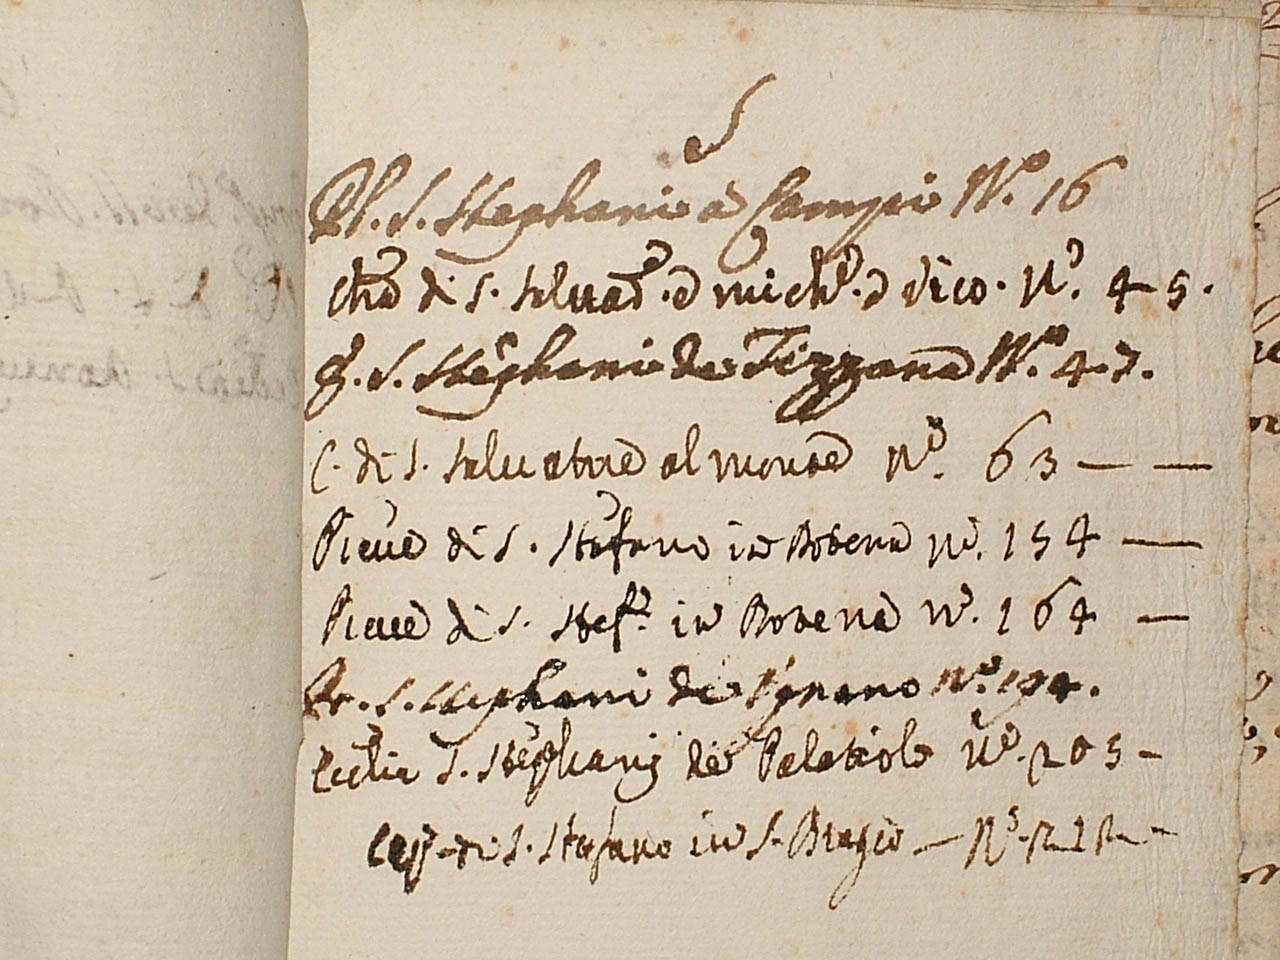 S
Pl. S. Stephani à Campi N.º 16
Chã di S. Saluat.e e Mich.e d Vico. N.º 45.
S. Stephani de Tizzana N.º 47.
C. di S. Saluatore al monte N.º 63 — —
Pieue di S. Stefano in Botena N.º 154 —
Pieue di S. Stef.º in Botena N.º 164 —
S. Stephani de N.º 194.
Ecclia S. Stephanj de Palatiolo N.º 205 -
Capp. di S. Stefano in S. Biagio — N.º 212 -